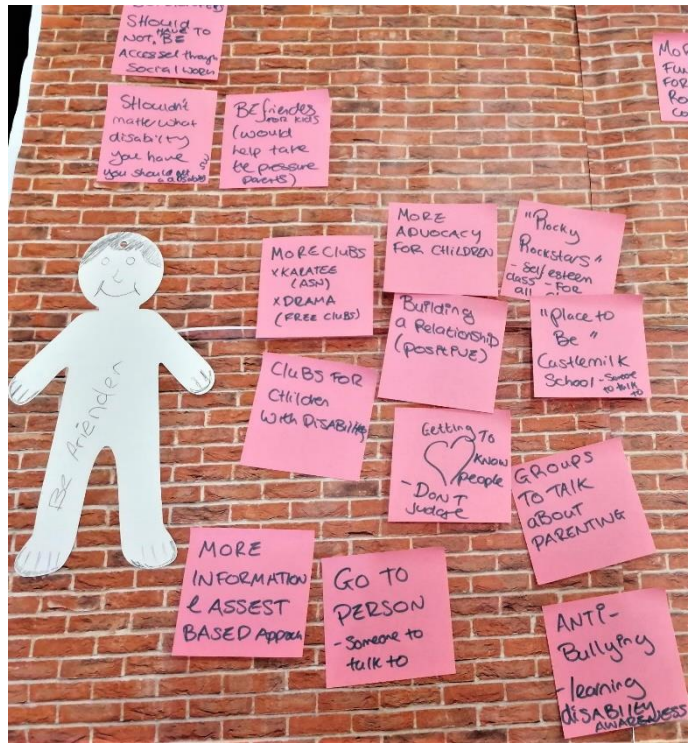 SHOULD
NOT, HAVE TO
BE
Accessed through
Social work
SHouldn't
matter what
disability
you have
you should get
SW
BEfriender
FOR KIDS
(would
help take
the pressure
parents)
MOR
FU
FOR
Bo
Co
MORE CLUBS
x KARATEE
(ASN)
x DRAMA
(FREE CLUBS)
MORE
ADVOCACY
FOR CHILDREN
"Rocky
Rockstars"
- Self esteem
class - FOR
all
Building
a Relationship
(positive)
"Place to
Be"
Castlemilk
School - Someone
to talk
to
CLUBS FOR
Children
With Disability
Getting TO
KNOW
people
- DON'T
judge
GROUPS
TO TALK
aBOUT
PARENTING
Be friender
MORE
INFORMATION
& ASSEST
BASED Approach
GO TO
PERSON
- Someone to
talk to
ANTI-
Bullying
- learning
disABILITY
AWARENESS